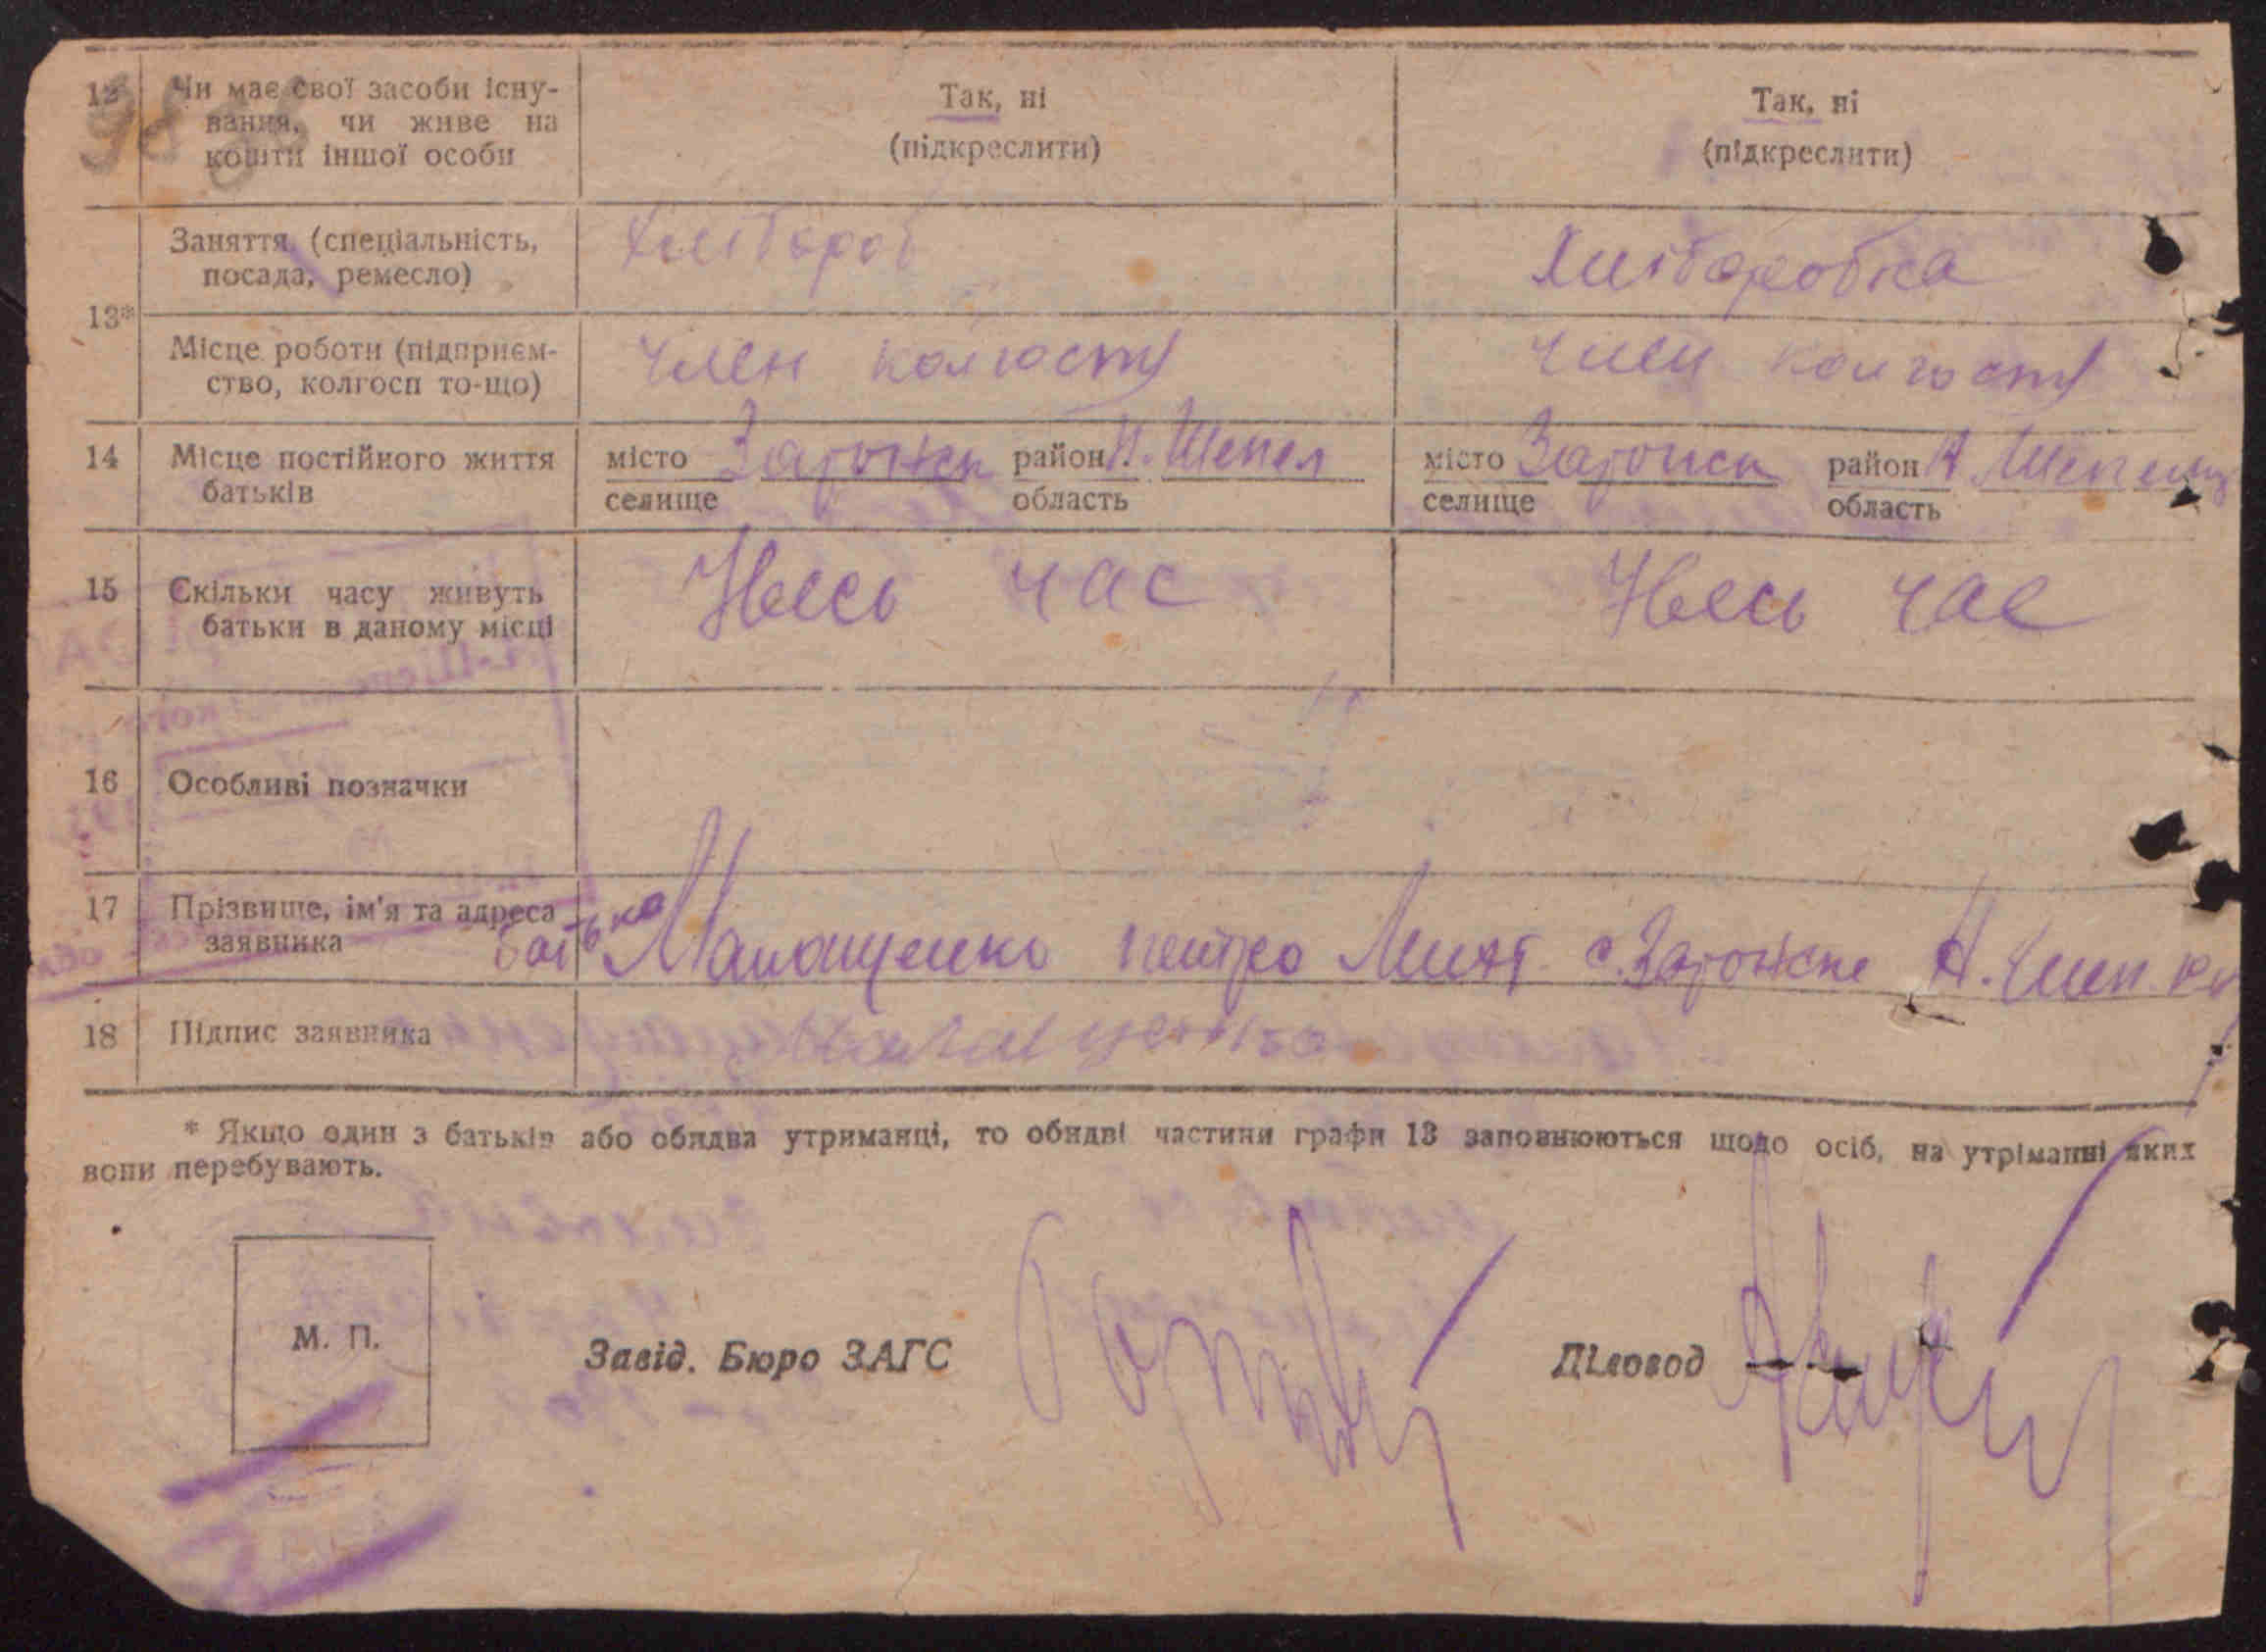 12 Чи має свої засоби існу- Так, ні Так, ні
вання, чи живе на (підкреслити) (підкреслити)
кошти іншої особи
Заняття (спеціальність, Хлібороб Хліборобка
посада, ремесло)
13*
Місце роботи (підприєм- член колгоспу член колгоспу
ство, колгосп то-що)
14 Місце постійного життя місто район Н. Шепел місто район Н. Шепел
батьків селище область селище область
15 Скільки часу живуть Увесь час Увесь час
батьки в даному місці
16 Особливі позначки
17 Прізвище, ім'я та адреса батько Малащенко петро
заявника
18 Підпис заявника Малащенко
* Якщо один з батьків або обидва утриманці, то обидві частини графи 13 заповнюються щодо осіб, на утріманні яких
вони перебувають.
М. П. Завід. Бюро ЗАГС Діловод